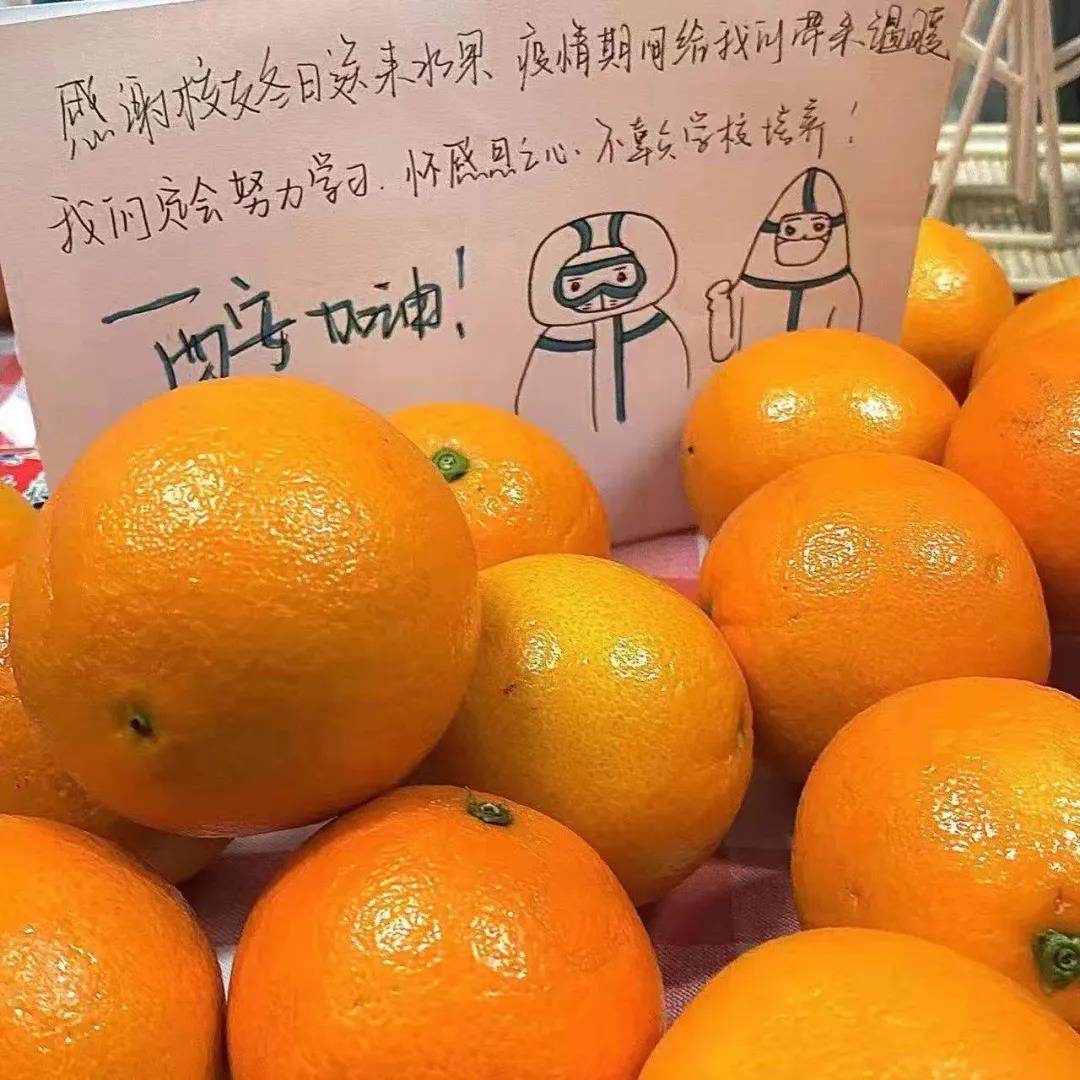 感谢校友冬日送来水果 疫情期间给我们带来温暖
我们定会努力学习.怀感恩之心.不辜负学校培养!
一西安加油!